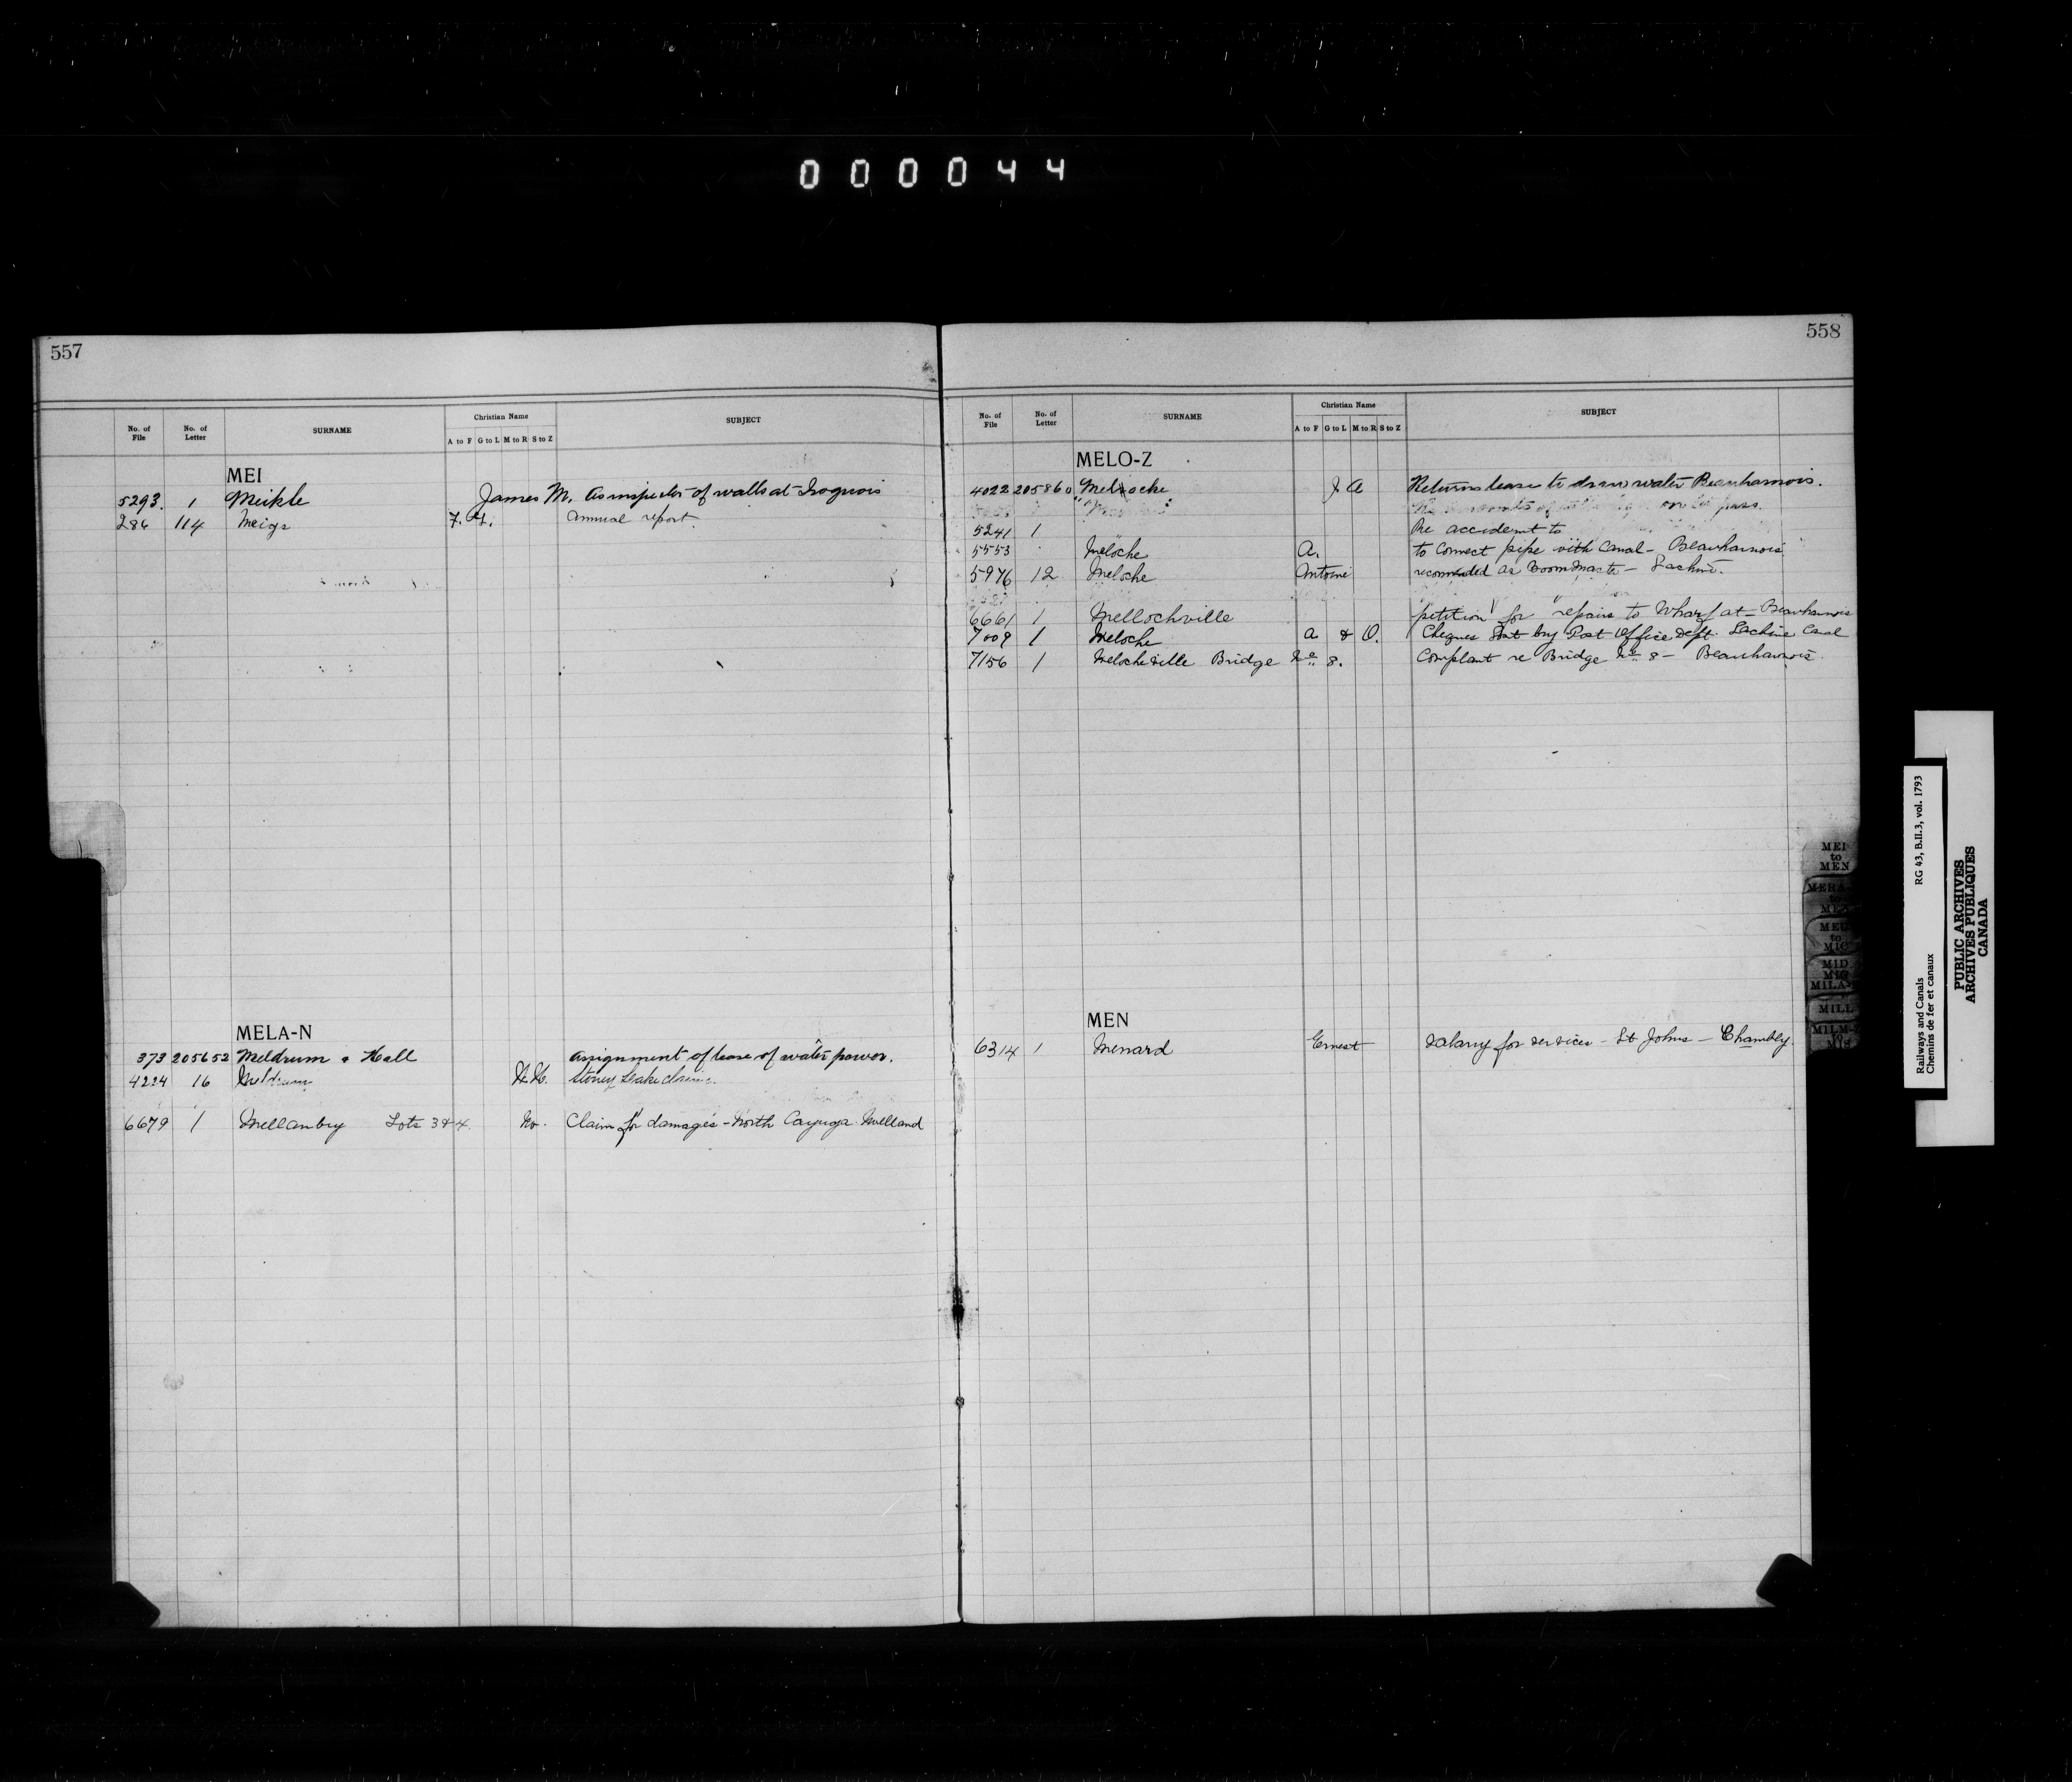 000044
557
No. of File No. of Letter SURNAME Christian Name A to F G to L M to R S to Z SUBJECT
MEI
5293. 1 Meikle James M. As inspector of walls at Iroquois
286 114 Meigs F. H. Annual report
MELA-N
373 205652 Meldrum & Hall Assignment of lease of water power.
4224 16 Meldrum Stoney Lake claim
6679 1 Mellanby Lots 3 & 4. No. Claim for damages - North Cayuga Welland
558
No. of File No. of Letter SURNAME Christian Name A to F G to L M to R S to Z SUBJECT
MELO-Z
4022 205860 Meloche J A Returns lease to draw water Beauharnois.
5241 1 " Re accident to
5553 Meloche A. to connect pipe with Canal - Beauharnois
5976 12 Meloche Antoine recommended as Boommaster - Lachine.
6661 1 Mellochville petition for repairs to Wharf at - Beauharnois
7009 1 Meloche A & O. Cheques Sent by Post Office Dept. Lachine Canal
7156 1 Melocheville Bridge No 8. Complaint re Bridge No 8 - Beauharnois
MEN
6314 1 Menard Ernest Salary for services - St Johns - Chambly.
MEI to MEN
MEU to MIC
MID
MILL
Railways and Canals RG 43, B.II.3, vol. 1793
Chemins de fer et canaux
PUBLIC ARCHIVES
ARCHIVES PUBLIQUES
CANADA